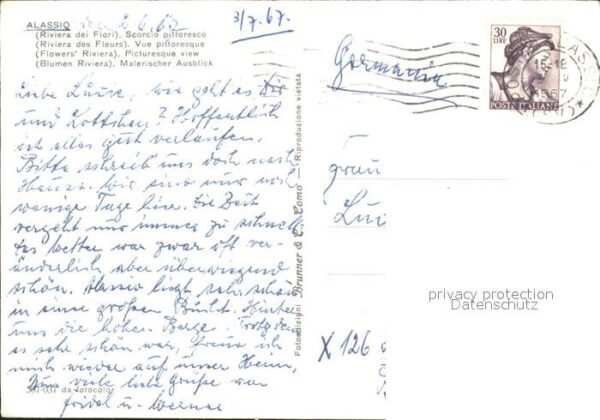 ALASSIO den 2.6.67
(Riviera dei Fiori). Scorcio pittoresco
(Riviera des Fleurs). Vue pittoresque
(Flowers' Riviera). Picturesque view
(Blumen Riviera). Malerischer Ausblick
3/7.67.
Liebe Luise, wie geht es Dir
und Lottchen? Hoffentlich
ist alles gut verlaufen.
Bitte schreib uns doch nach
Hause. Wir sind nur noch
wenige Tage hier. Die Zeit
vergeht uns immer zu schnell
das Wetter war zwar oft ver-
änderlich aber überwiegend
schön. Alassio liegt sehr schön
in einer großen Bucht. Hinter
uns die hohen Berge. Trotzdem
es sehr schön war, freue ich
mich wieder auf unser Heim,
Nun viele liebe Grüße von
Fridel u.
367-037 da fotocolor
Fotoedizioni Brunner & C., Como — Riproduzione vietata
Germania
30
LIRE
POSTE ITALIANE
ALASSIO
15-18
1967
Frau
Lui
privacy protection
Datenschutz
X 126